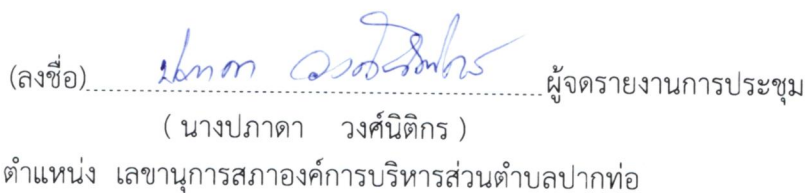 (ลงชื่อ) ปภาดา วงศ์นิติกร ผู้จดรายงานการประชุม
( นางปภาดา วงศ์นิติกร )
ตำแหน่ง เลขานุการสภาองค์การบริหารส่วนตำบลปากท่อ